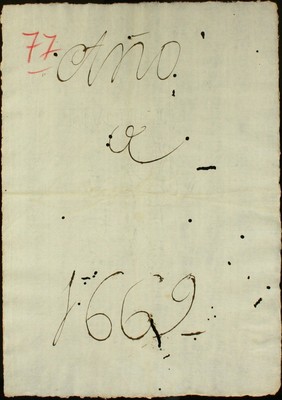 77
Año
a
1669